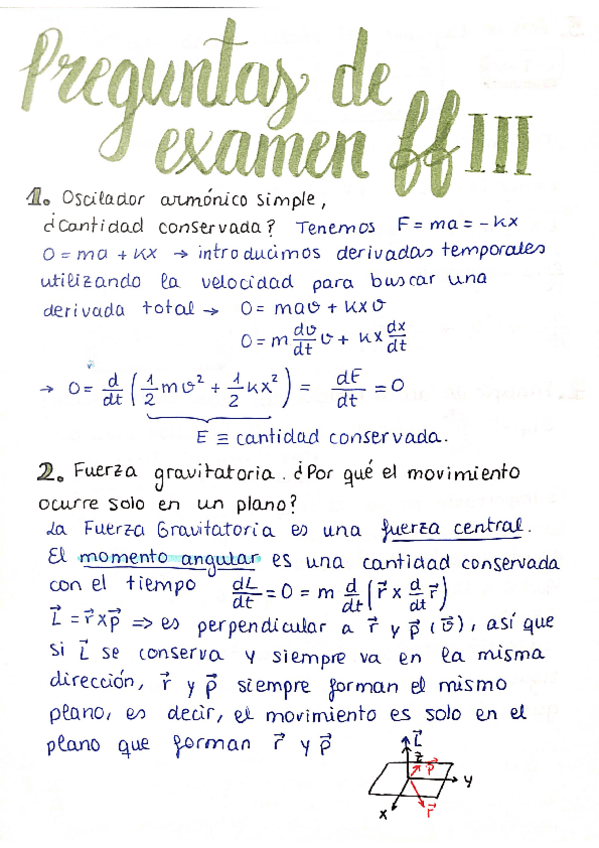 Preguntas de
examen ff III
1. Oscilador armónico simple,
¿Cantidad conservada? Tenemos F = ma = -kx
0 = ma + kx → introducimos derivadas temporales
utilizando la velocidad para buscar una
derivada total → 0 = mav + kxv
0 = m dv/dt v + kx dx/dt
→ 0 = d/dt (1/2 mv² + 1/2 kx²) = dE/dt = 0
E ≡ cantidad conservada.
2. Fuerza gravitatoria. ¿Por qué el movimiento
ocurre solo en un plano?
La Fuerza Gravitatoria es una fuerza central.
El momento angular es una cantidad conservada
con el tiempo dL/dt = 0 = m d/dt (r⃗ x d/dt r⃗)
L⃗ = r⃗ x p⃗ => es perpendicular a r⃗ y p⃗ (v⃗), así que
si L⃗ se conserva y siempre va en la misma
dirección, r⃗ y p⃗ siempre forman el mismo
plano, es decir, el movimiento es solo en el
plano que forman r⃗ y p⃗
L⃗
z
p⃗
y
x
r⃗